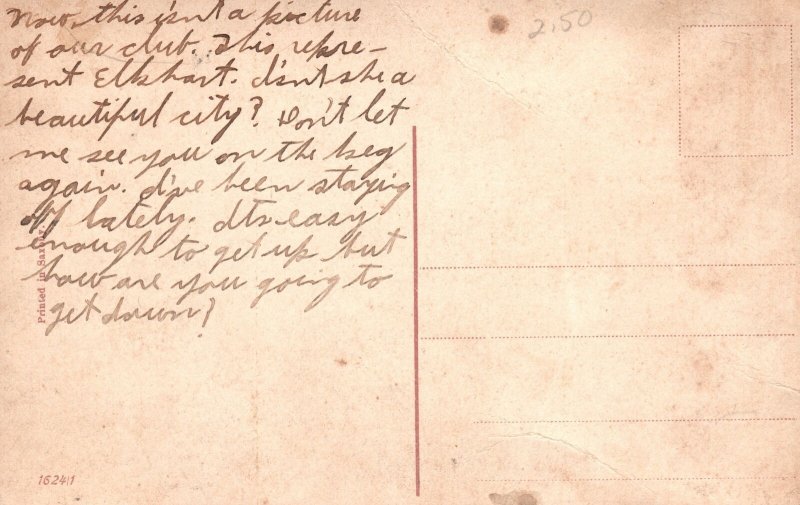 Now, this isn't a picture
of our club. This repre-
sent Elkhart. Isn't she a
beautiful city? Don't let
me see you on the keg
again. I've been staying
off lately. It's easy
enough to get up but
how are you going to
get down?
2.50
Printed in Saxony.
16241